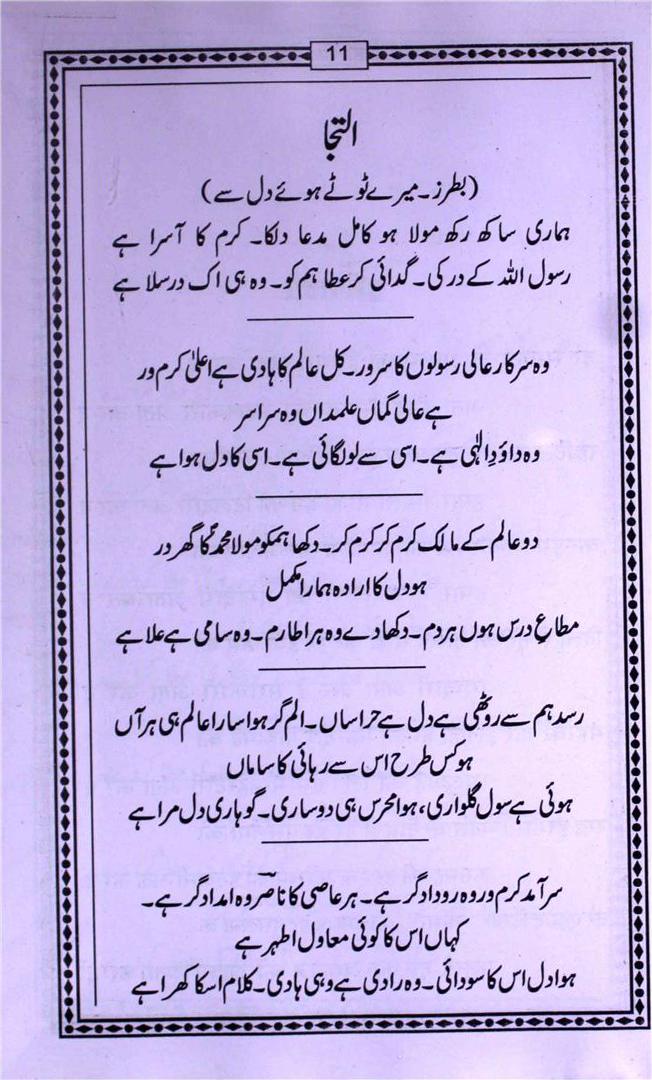 11
التجا
(بطرز۔ میرے ٹوٹے ہوئے دل سے)
ہماری ساکھ رکھ مولا ہو کامل مدعا دلکا۔ کرم کا آسرا ہے
رسول اللہ کے در کی۔ گدائی کر عطا ہم کو۔ وہ ہی اک درسلا ہے
وہ سرکار عالی رسولوں کا سرور۔ کل عالم کا ہادی ہے اعلیٰ کرم ور
ہے عالی گماں علمداں وہ سراسر
وہ داؤدِ الٰہی ہے۔ اسی سے لو لگائی ہے۔ اسی کا دل ہوا ہے
دو عالم کے مالک کرم کر کرم کر۔ دکھا ہمکو مولا محمدؐ کا گھر در
ہو دل کا ارادہ ہمارا مکمل
مطاعِ درس ہوں ہر دم۔ دکھا دے وہ ہرا طارم۔ وہ سامی ہے علا ہے
رسد ہم سے روٹھی ہے دل ہے حراساں۔ الم گر ہوا سارا عالم ہی ہر آں
ہو کس طرح اس سے رہائی کا ساماں
ہوئی ہے سول گلواری، ہوا لحرس ہی دو ساری۔ گو ہاری دل مرا ہے
سر آمد کرم ور وہ روداد گر ہے۔ ہر عاصی کا ناصر وہ امداد گر ہے۔
کہاں اس کا کوئی معاول اطہر ہے
ہوا دل اس کا سودائی۔ وہ رادی ہے وہی ہادی۔ کلام اسکا کھرا ہے